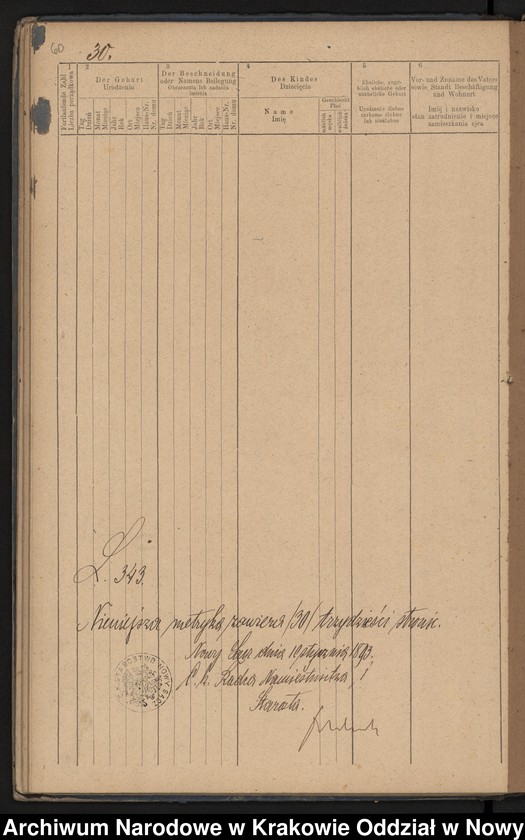 60
30.
1
2
3
4
5
6
Fortlaufende Zahl
Liczba porządkowa
Der Geburt
Urodzenia
Tag
Dzień
Monat
Miesiąc
Jahr
Rok
Ort
Miejsce
Haus-Nr.
Nr. domu
Der Beschneidung
oder Namens Beilegung
Obrzezania lub nadania
imienia
Tag
Dzień
Monat
Miesiąc
Jahr
Rok
Ort
Miejsce
Haus-Nr.
Nr. domu
Des Kindes
Dziecięcia
Name
Imię
Geschlecht
Płeć
männlich
męska
weiblich
żeńska
Eheliche, angeb-
lich eheliche oder
uneheliche Geburt
Urodzenie ślubne
rzekomo ślubne
lub nieślubne
Vor- und Zuname des Vaters
sowie Standt Beschäftigung
und Wohnort
Imię i nazwisko
stan zatrudnienie i miejsce
zamieszkania ojca
L. 343.
Niniejsza metryka zawiera /30/ trzydzieści stronic.
Nowy Sącz dnia 19 stycznia 1893.
C. k. Radca Namiestnictwa i
Starosta.
STAROSTWO NOWY SĄCZ
Archiwum Narodowe w Krakowie Oddział w Nowy